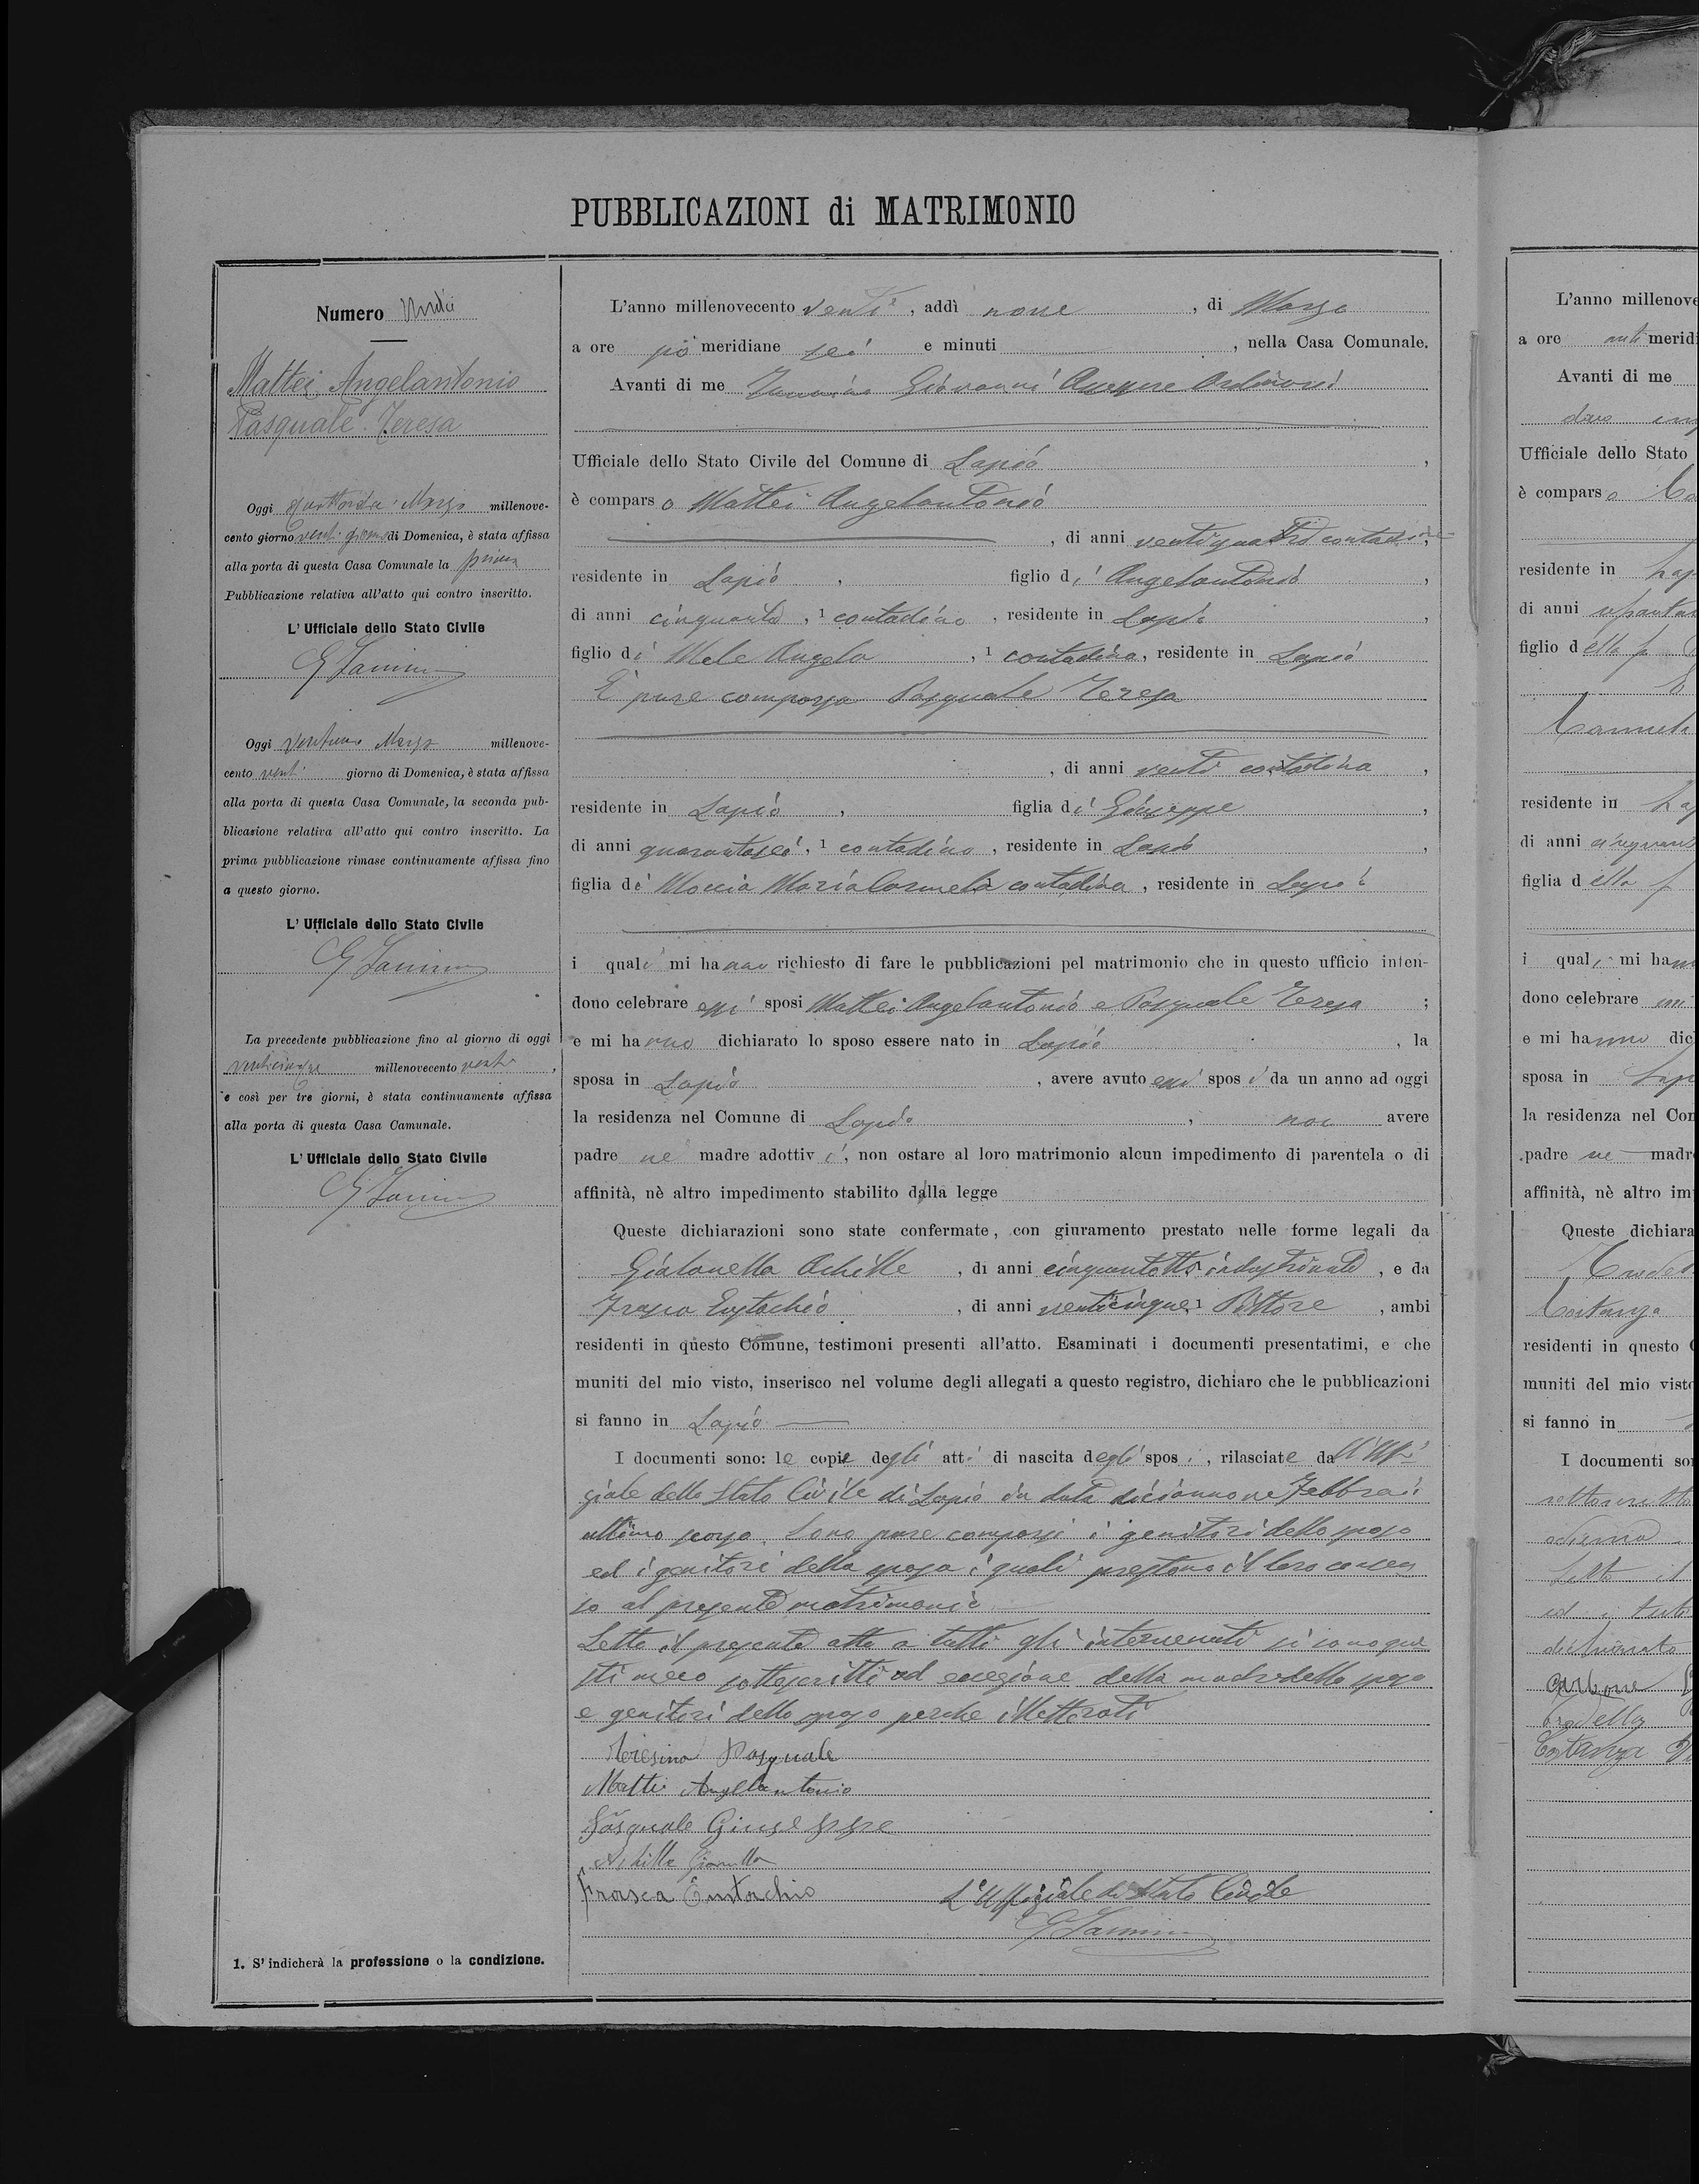 PUBBLICAZIONI di MATRIMONIO
Numero Undici
Mattei Angelantonio
Pasquale Teresa
Oggi quattordici Marzo millenove-
cento giorno venti giorno di Domenica, è stata affissa
alla porta di questa Casa Comunale la prima
Pubblicazione relativa all'atto qui contro inscritto.
L'Ufficiale dello Stato Civile
Oggi ventuno Marzo millenove-
cento venti giorno di Domenica, è stata affissa
alla porta di questa Casa Comunale, la seconda pub-
blicazione relativa all'atto qui contro inscritto. La
prima pubblicazione rimase continuamente affissa fino
a questo giorno.
L'Ufficiale dello Stato Civile
La precedente pubblicazione fino al giorno di oggi
venticinque millenovecento venti,
e così per tre giorni, è stata continuamente affissa
alla porta di questa Casa Camunale.
L'Ufficiale dello Stato Civile
1. S'indicherà la professione o la condizione.
L'anno millenovecento venti, addì nove, di Marzo
a ore po meridiane sei e minuti , nella Casa Comunale.
Avanti di me Giovanni
Ufficiale dello Stato Civile del Comune di Lapio,
è comparso Mattei Angelantonio
, di anni ventiquattro contadino,
residente in Lapio, figlio di Angelantonio,
di anni cinquanta, 1 contadino, residente in Lapio,
figlio di Mele Angela, 1 contadina, residente in Lapio
E' pure comparsa Pasquale Teresa
, di anni venti contadina,
residente in Lapio, figlia di Giuseppe,
di anni quarantasei, 1 contadino, residente in Lapio,
figlia di Moccia Maria Carmela contadina, residente in Lapio
i quali mi hanno richiesto di fare le pubblicazioni pel matrimonio che in questo ufficio inten-
dono celebrare essi sposi Mattei Angelantonio e Pasquale Teresa;
e mi hanno dichiarato lo sposo essere nato in Lapio, la
sposa in Lapio, avere avuto essi sposi da un anno ad oggi
la residenza nel Comune di Lapio, non avere
padre ne madre adottivi, non ostare al loro matrimonio alcun impedimento di parentela o di
affinità, nè altro impedimento stabilito dalla legge
Queste dichiarazioni sono state confermate, con giuramento prestato nelle forme legali da
Gialonella Achille, di anni cinquantotto industriante, e da
Frasca Eustachio, di anni venticinque, 1 Pittore, ambi
residenti in questo Comune, testimoni presenti all'atto. Esaminati i documenti presentatimi, e che
muniti del mio visto, inserisco nel volume degli allegati a questo registro, dichiaro che le pubblicazioni
si fanno in Lapio
I documenti sono: le copie degli atti di nascita degli sposi, rilasciate dall'Uffi
ziale dello Stato Civile di Lapio in data diciannove Febbraio
ultimo scorso. Sono pure comparsi i genitori dello sposo
ed i genitori della sposa i quali prestano il loro consen
so al presente matrimonio
Letto il presente atto a tutti gli intervenuti si sono que
sti meco sottoscritti ad eccezione della madre della sposa
e genitori dello sposo perche illetterati
Teresina Pasquale
Mattei Angelantonio
Pasquale Giuseppe
Achille
Frasca Eustachio L'Uffiziale di Stato Civile
L'anno millenove
a ore anti merid
Avanti di me
Ufficiale dello Stato
è comparso
residente in Lap
di anni
figlio della fu
residente in Lap
di anni
figlia della f
i quali mi han
dono celebrare
e mi hanno dic
sposa in Lap
la residenza nel Com
padre ne madr
affinità, nè altro im
Queste dichiara
residenti in questo
muniti del mio visto
si fanno in
I documenti so